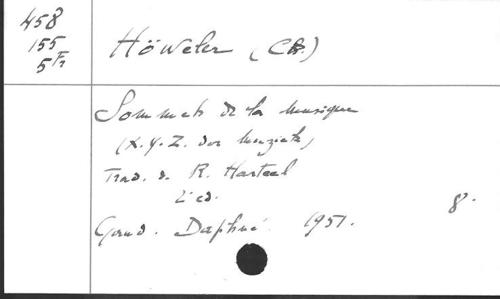 458
155
5 Fr
Höweler (Cr.)
Sommets de la musique
(X.Y.Z. der Muziek)
Trad. d. R. Harteel
2 ed.
Gand. Daphné. 1951. 8.